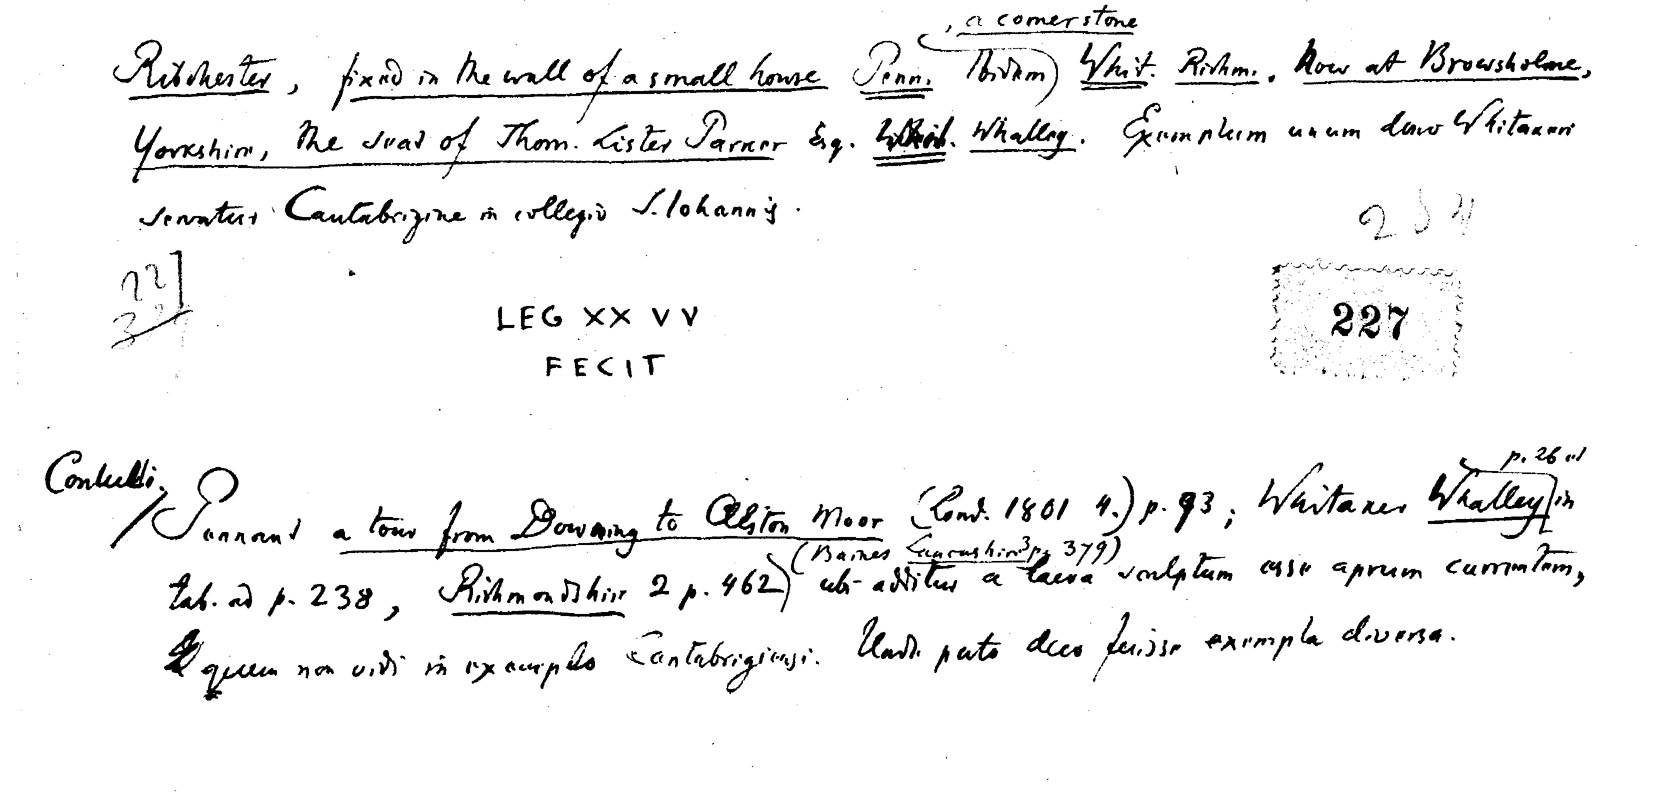 , a cornerstone
Ribchester, fixed in the wall of a small house Penn. Ibidem) Whit. Richm. Now at Browsholme,
Yorkshire, the seat of Thom. Lister Parker Esq. Whit. Whalley. Exemplum unum duo Whitakeri
servatur Cantabrigiae in collegio S. Iohannis.
234
227
LEG XX VV
227
FECIT
p. 26 et
Contuli. Pennant a tour from Downing to Alston Moor (Lond. 1801 4.) p. 93; Whitaker Whalley in
(Baines Lancashire 3 p. 379)
tab. ad p. 238, Richmondshire 2 p. 462) ubi additur a laeva sculptum esse aprum currentem,
quem non vidi in exemplo Cantabrigiensi. Unde puto duo fuisse exempla diversa.